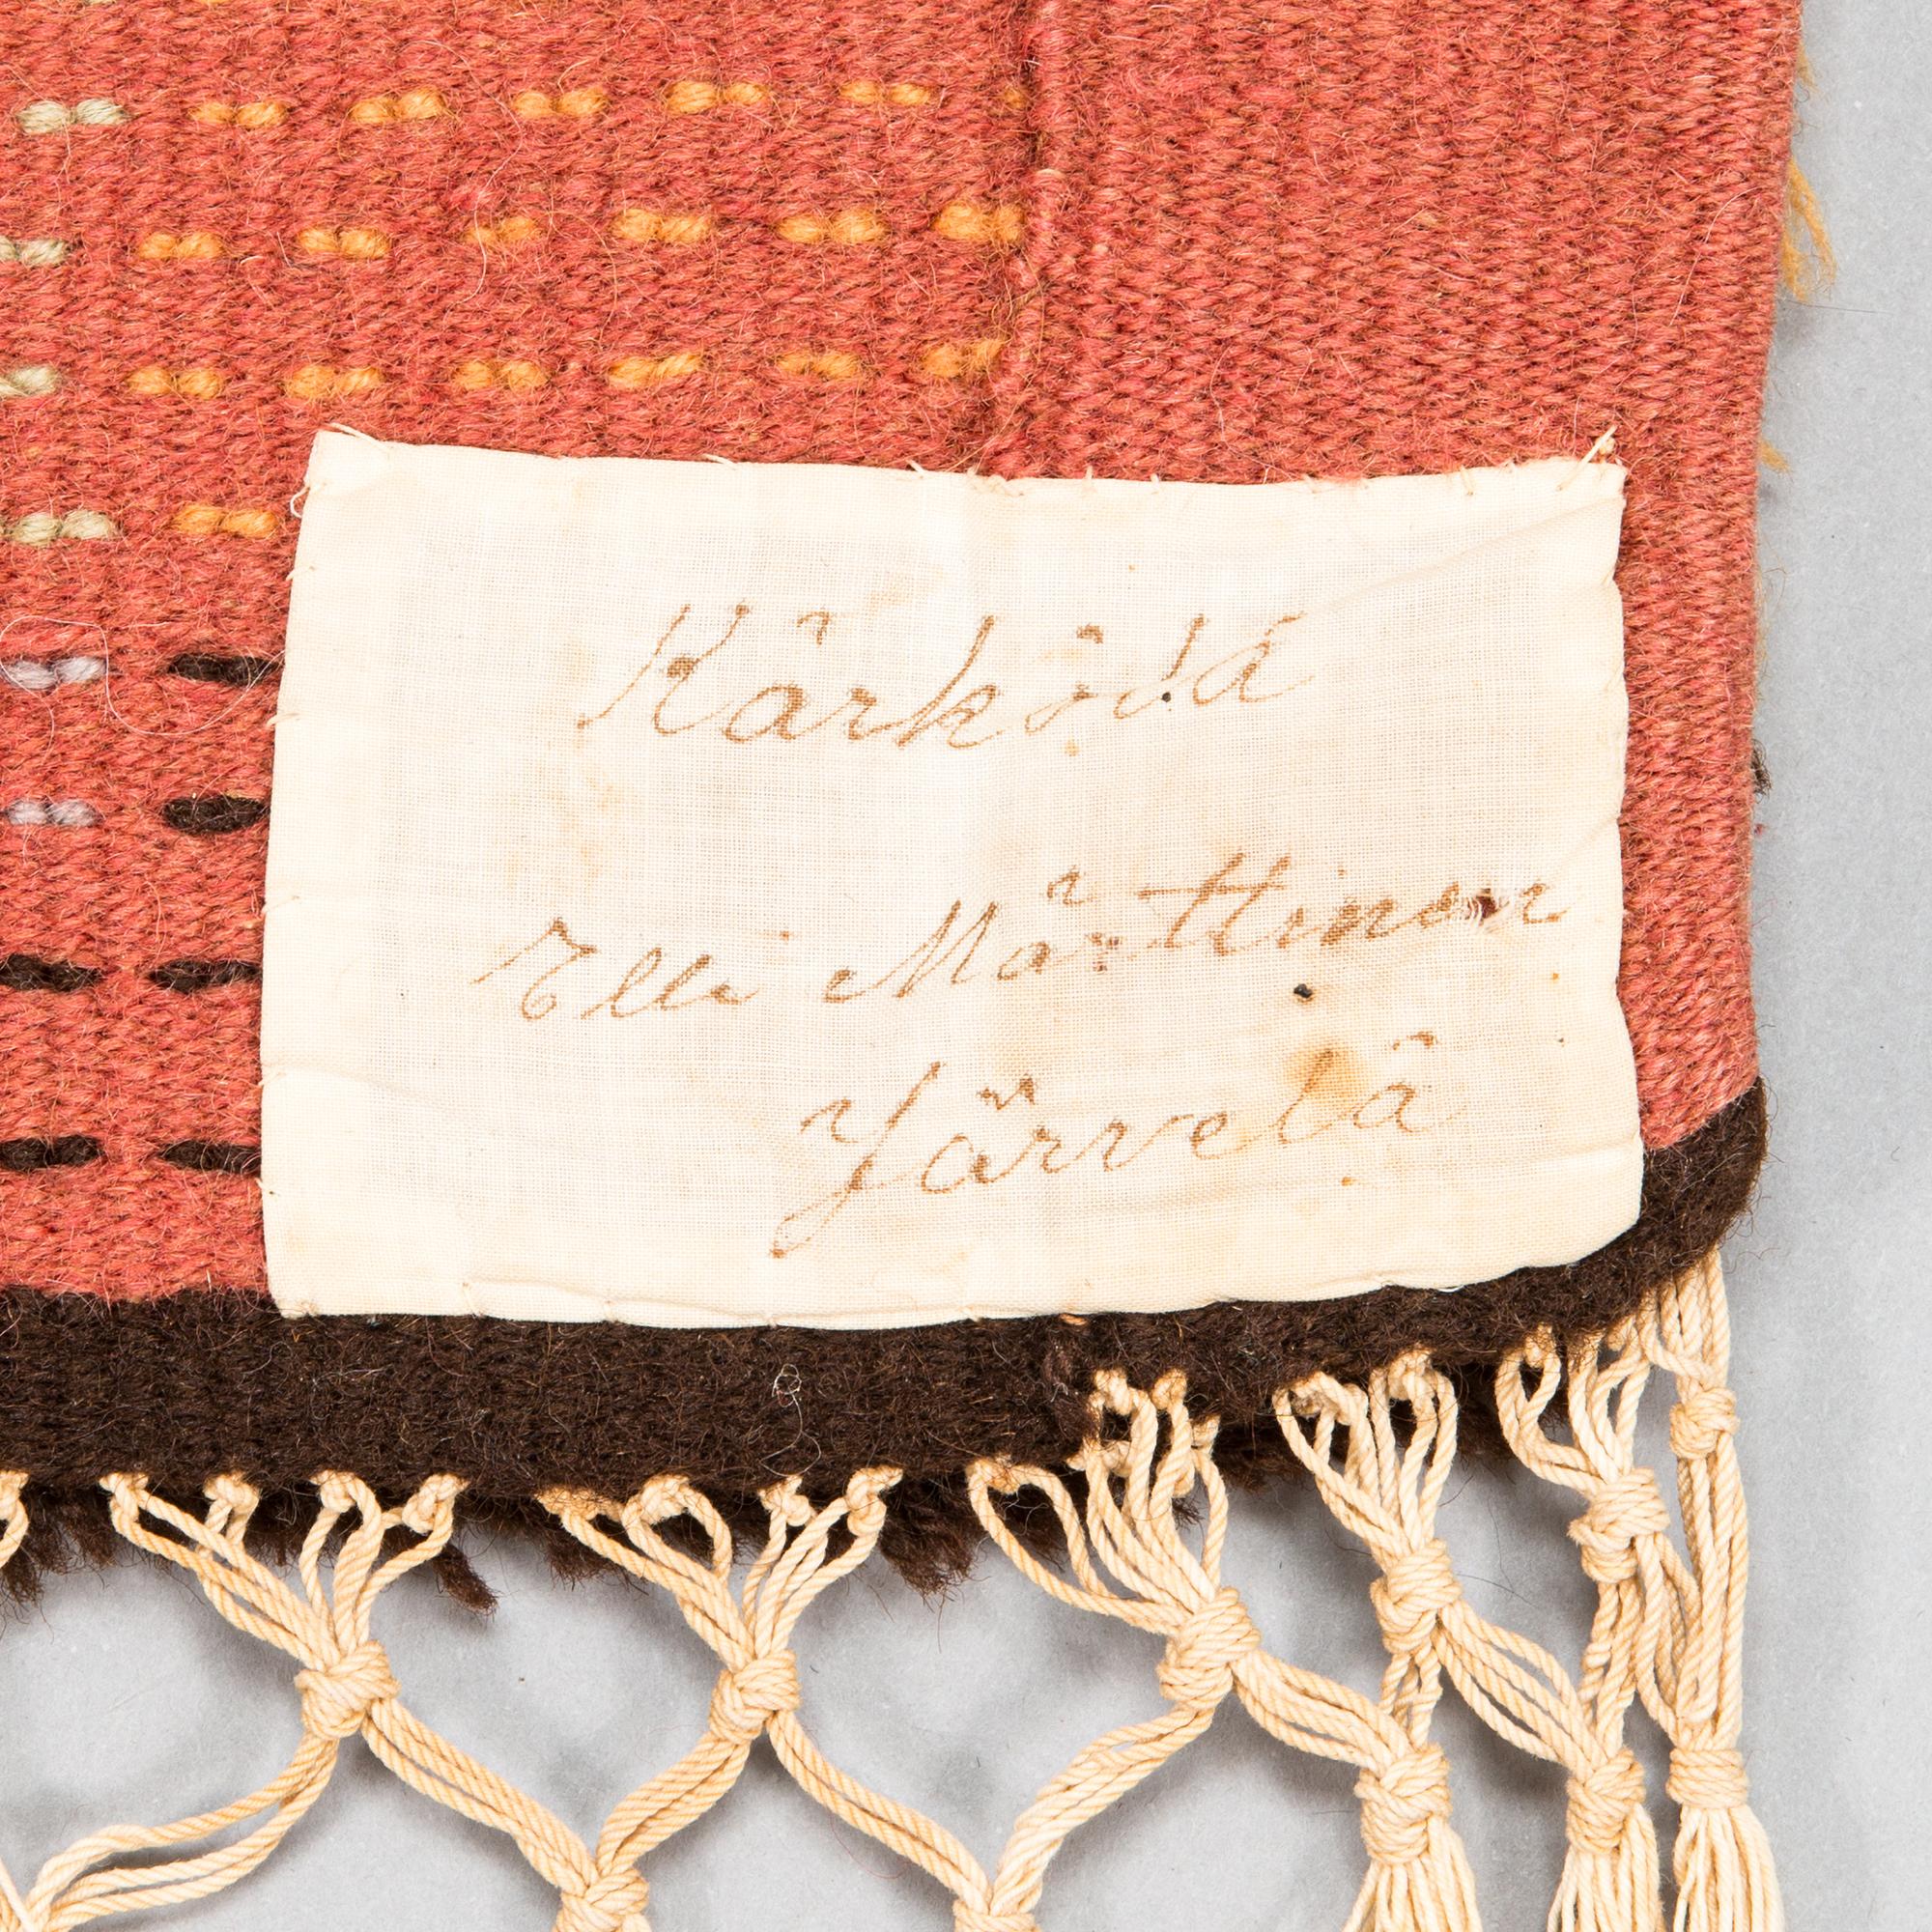 Kärkölä
Elli Märttinen
Järvelä